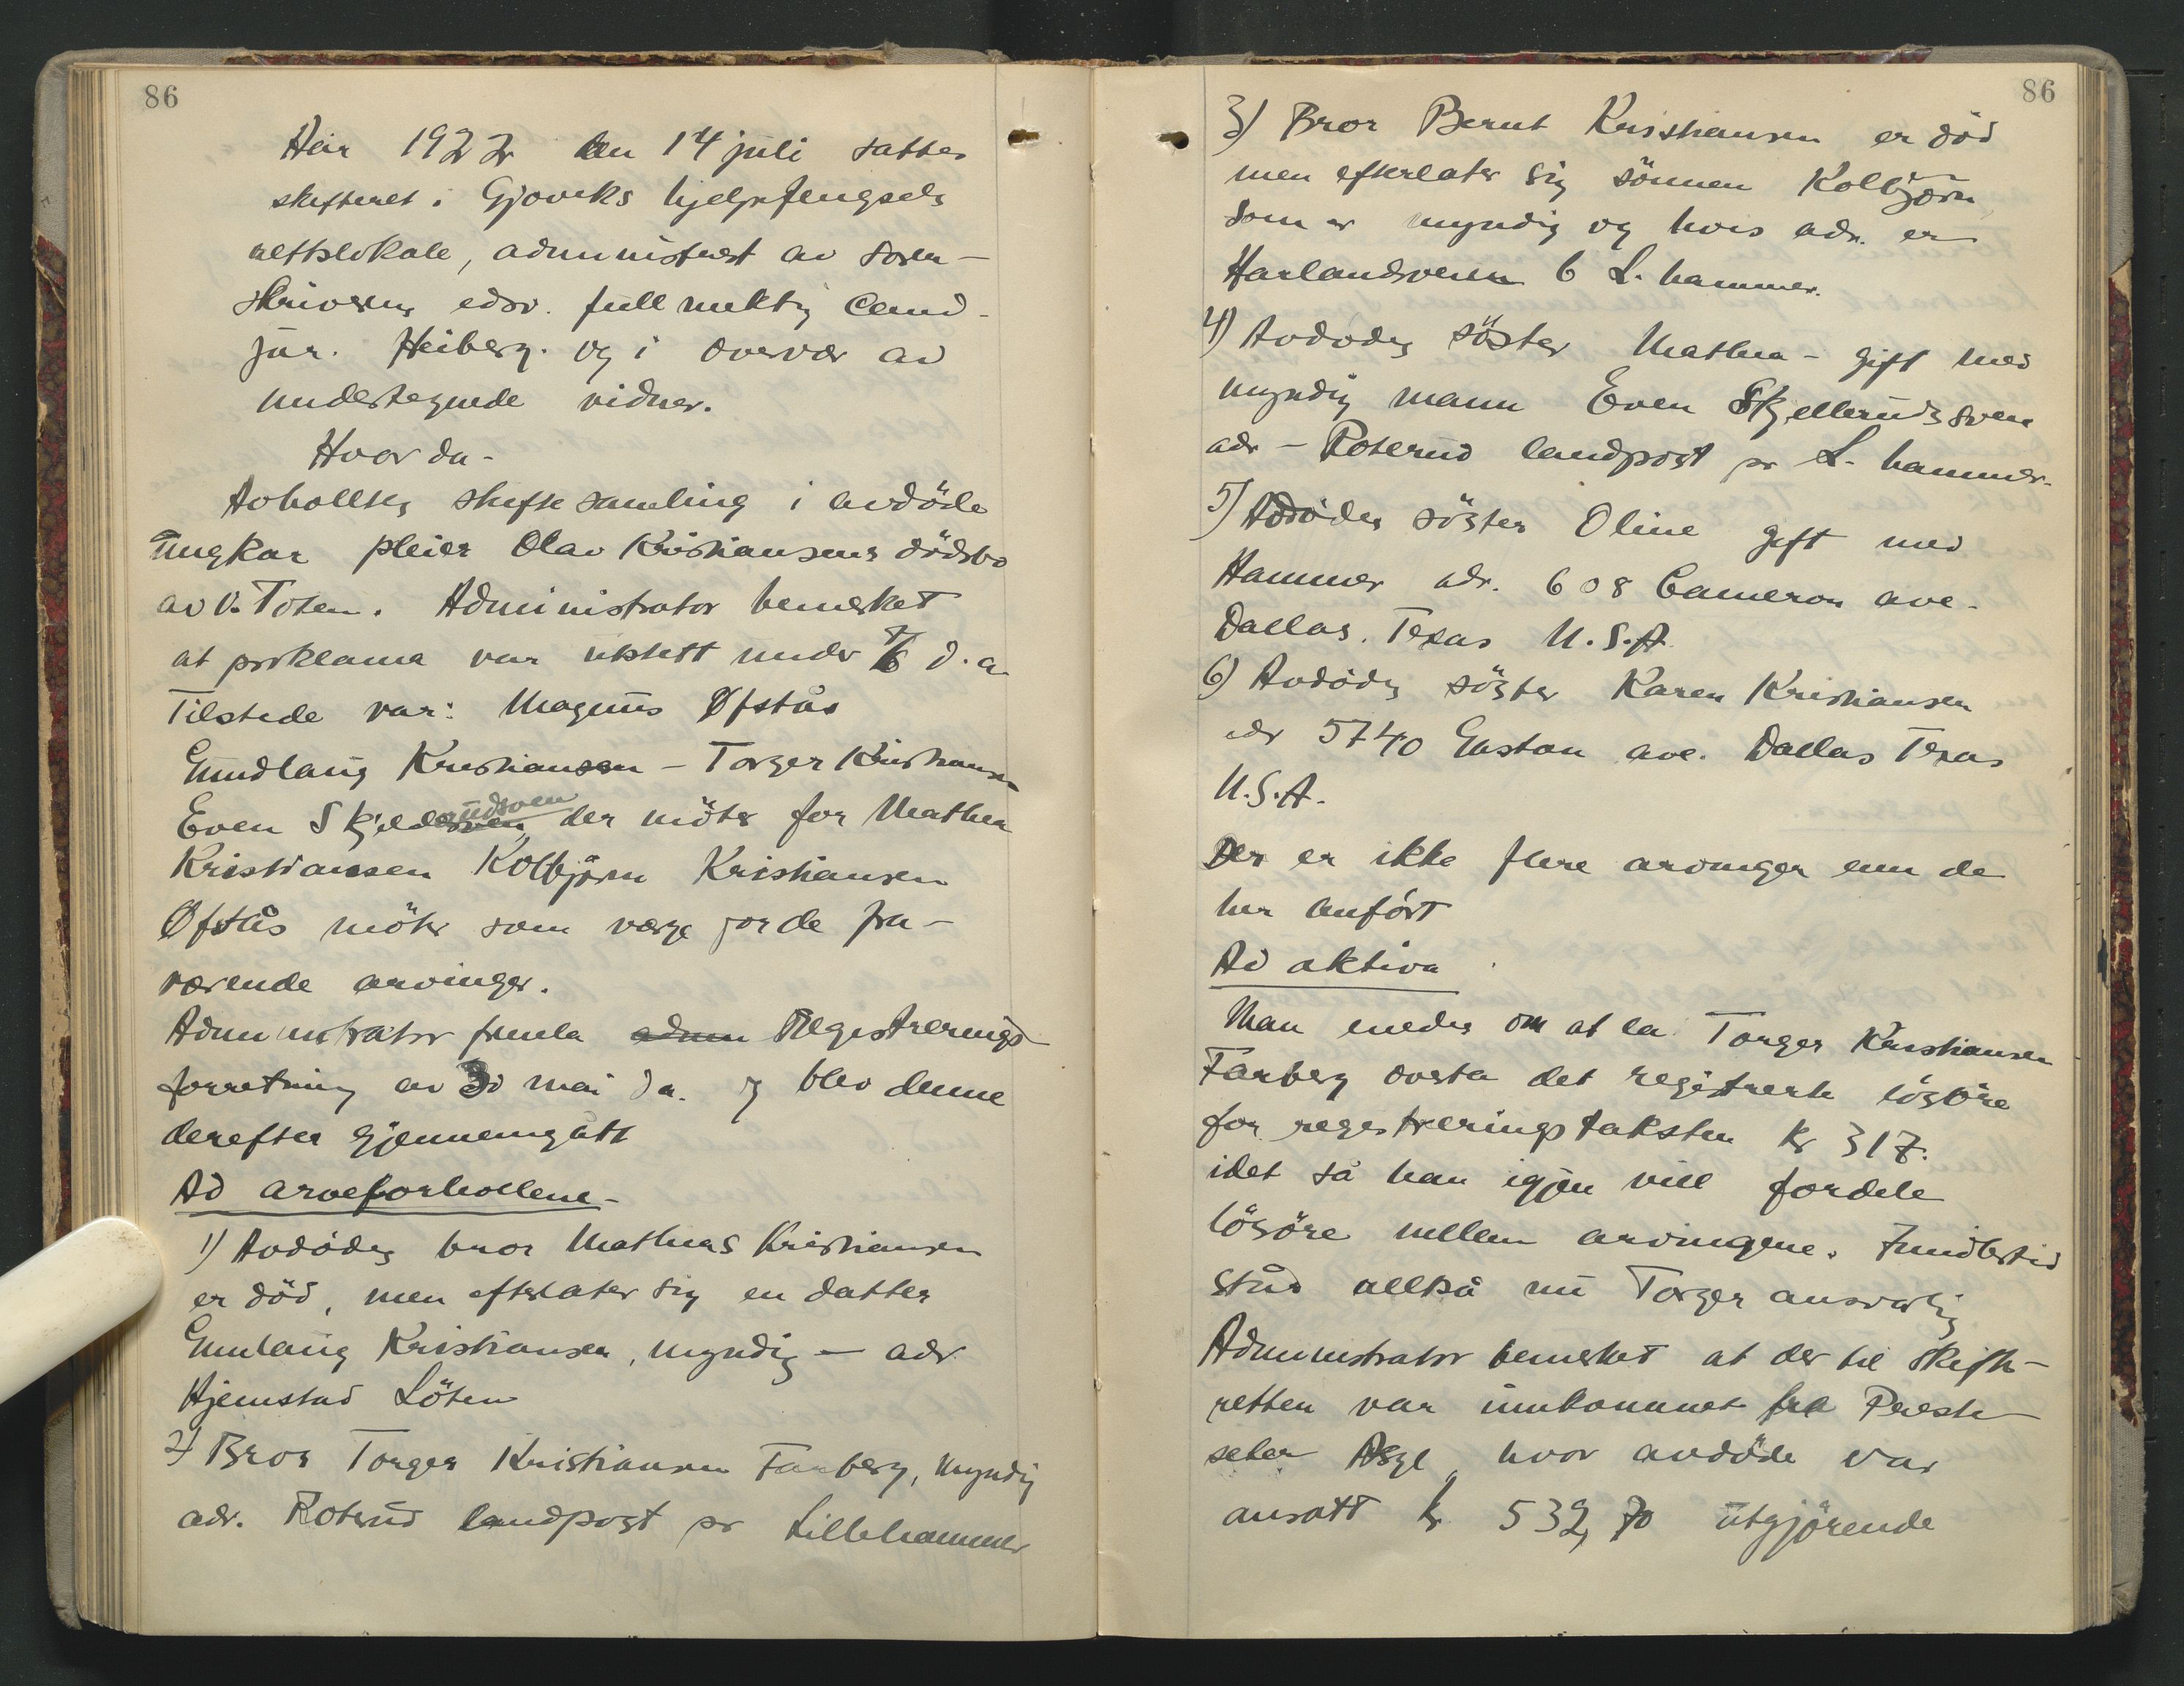 86
Aar 1922 den 14 juli sattes
skifteret i Gjøviks hjelpefengsels
rettslokale, administrert av soren-
skriverens edsv. fullmektig Cand.
jur. Heiberg. og i overvær av
undertegnede vidner.
Hvor da-
Avholltes skiftesamling i avdöde
Ungkar pleier Olav Kristiansens dödsbo
av V. Toten. Administrator bemerket
at proklama var utstett under 7/6 d.a.
Tilstede var: Magnus Øfstås
Gundlaug Kristiansen - Torger Kristiansen
Even Skjelderudsveen der möter for Mathea
Kristiansen Kolbjörn Kristiansen
Øfstås möter som verge for de fra-
værende arvinger.
Administrator fremla Registrerings-
forretning av 30 mai d.a. og blev denne
derefter gjennemgått
Ad arveforhollene-
1) Avdödes bror Mathias Kristiansen
er död, men efterlater sig en datter
Gunlaug Kristiansen, myndig - adr
Hjemstad Löten
2) Bror Torger Kristiansen Farberg, myndig
adr. Roterud landpost pr Lillehammer
86
3) Bror Bernt Kristiansen er död
men efterlater sig sönnen Kolbjörn
som er myndig og hvis adr. er
Harlandsveien 6 L. hammer.
4) Avdödes söster Mathea - gift med
myndig mann Even Skjellerudsveen
adr - Roterud landpost pr L. hammer.
5) Avdödes söster Oline gift med
Hammer adr. 608 Cameron ave.
Dallas. Texas U.S.A.
6) Avdödes söster Karen Kristiansen
adr 5740 Gaston ave. Dallas Texas
U.S.A.
Der er ikke flere arvinger enn de
her anfört
Ad aktiva
Man enedes om at la Torger Kristiansen
Farberg overta det registrerte lösöre
for registreringstaksten kr 317.
idet så han igjen vill fordele
lösöre mellem arvingene. Imidlertid
står alltså nu Torger ansvarlig
Administrator bemerket at der til skifte-
retten var innkommet fra Preste-
seter Asyl, hvor avdöde var
ansatt kr 532,70 utgjörende